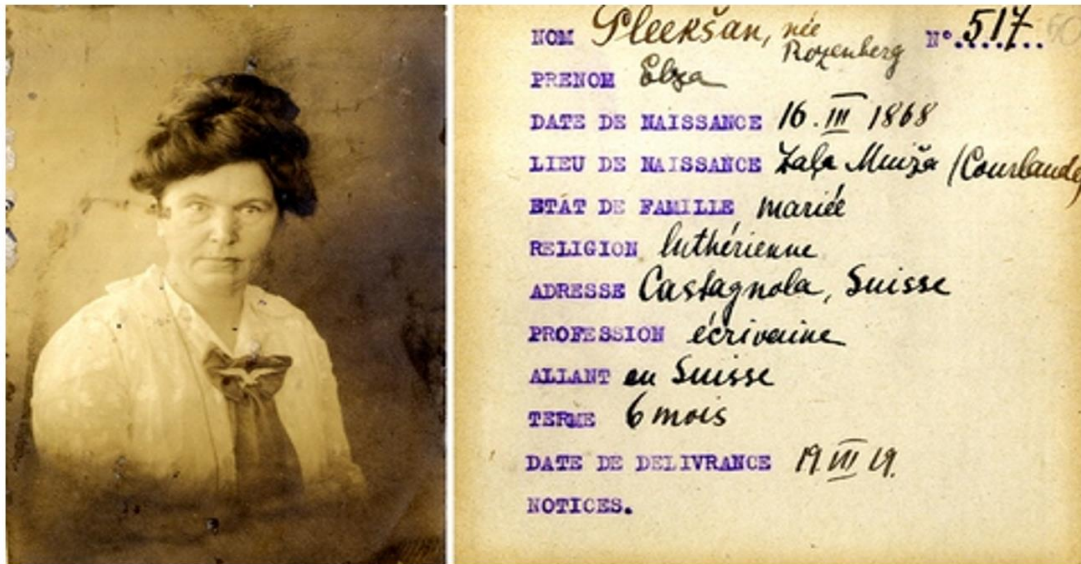 NOM Pleekšan, née
Rozenberg
N° 517
PRENOM Elza
DATE DE NAISSANCE 16. III 1868
LIEU DE NAISSANCE Zaļa Muiža (Courlande)
ETAT DE FAMILLE mariée
RELIGION luthérienne
ADRESSE Castagnola, Suisse
PROFESSION écrivaine
ALLANT en Suisse
TERME 6 mois
DATE DE DELIVRANCE 19. III 19.
NOTICES.